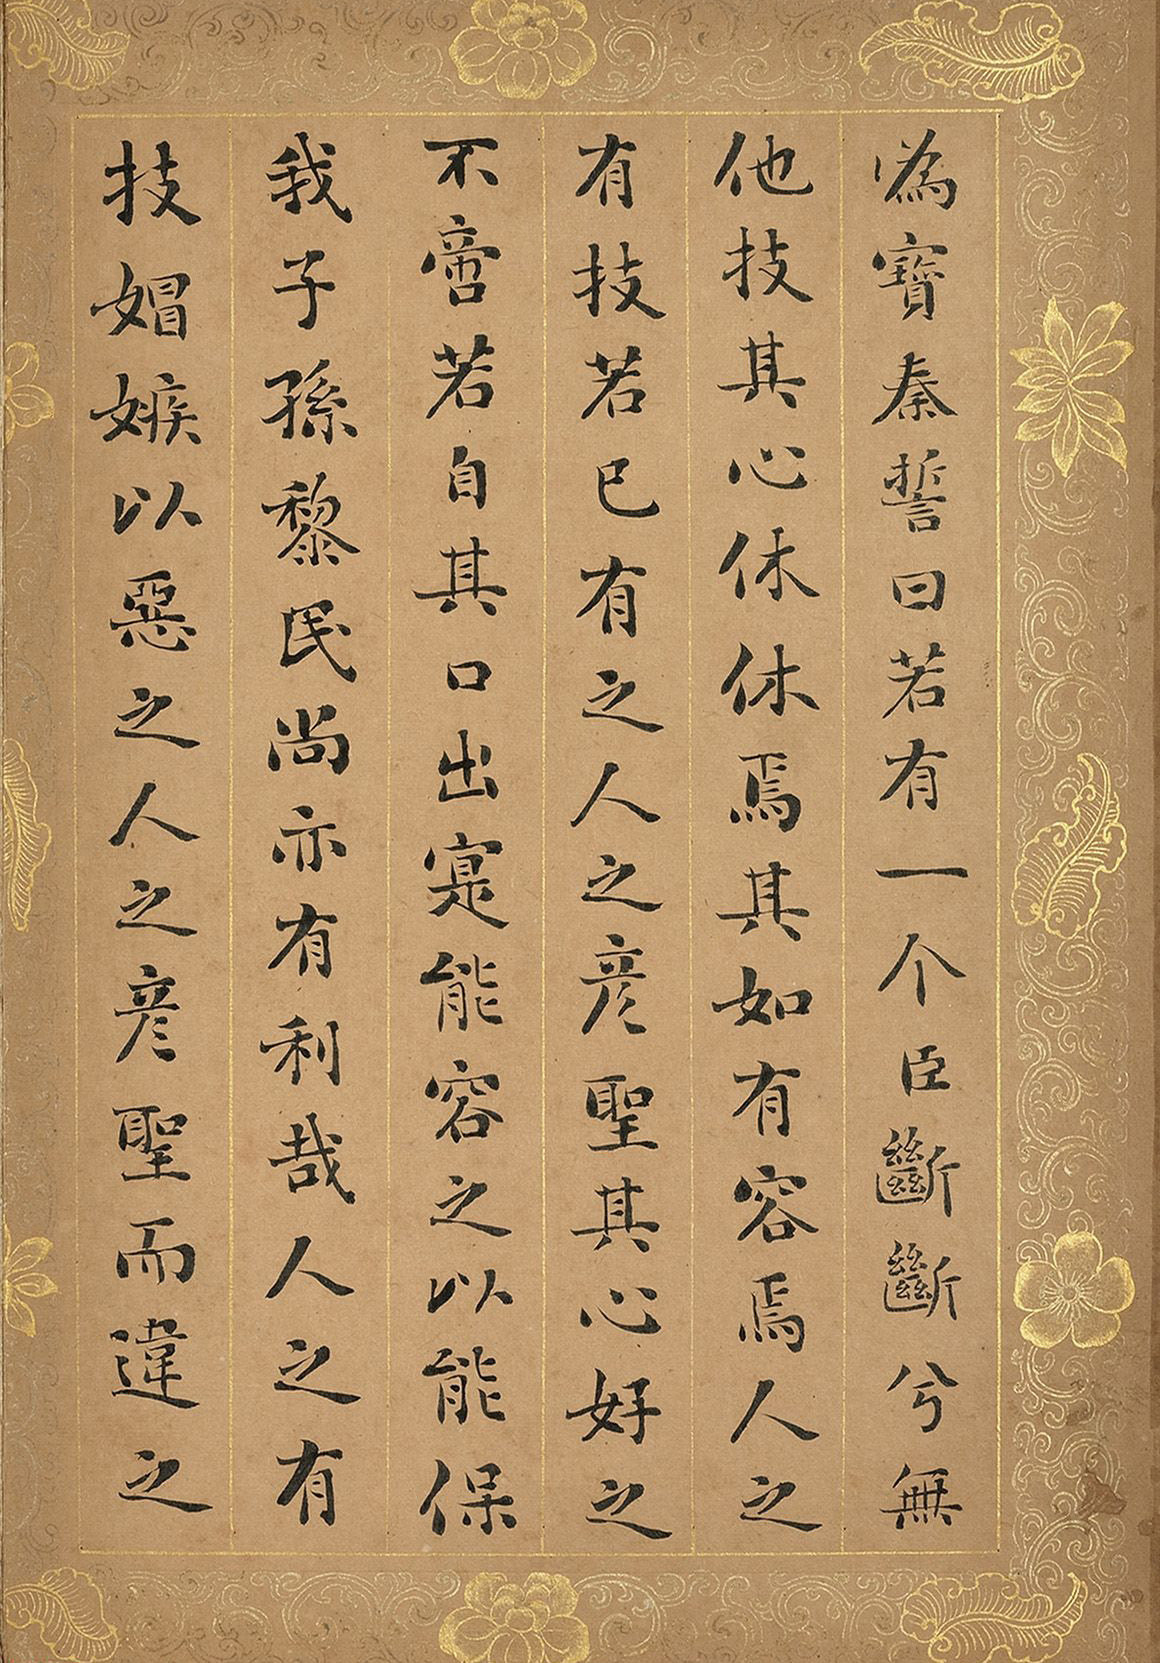 為寶秦誓曰若有一个臣斷斷兮無
他技其心休休焉其如有容焉人之
有技若已有之人之彥聖其心好之
不啻若自其口出寔能容之以能保
我子孫黎民尚亦有利哉人之有
技媢嫉以惡之人之彥聖而違之